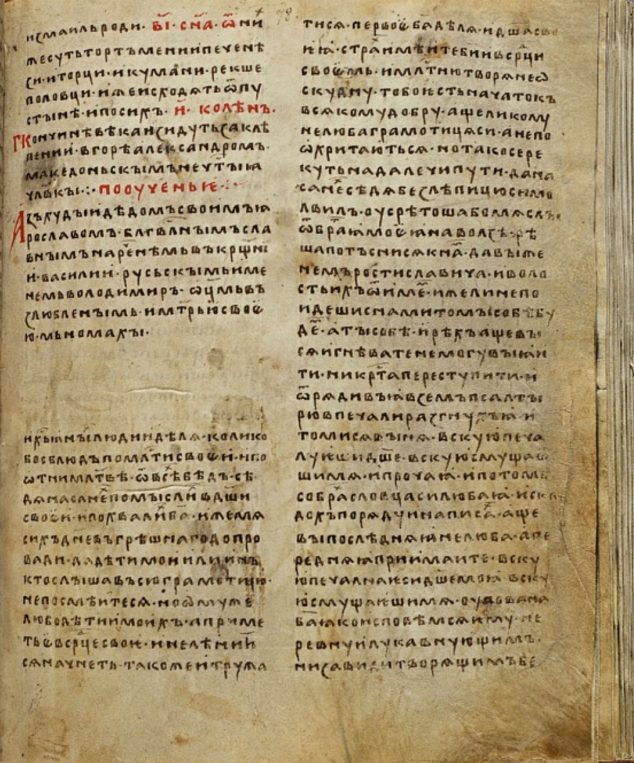 измаильроди · в҃і · сн҃а · ѿни
жесутьтортъмениипеченѣ
зи · иторци · икумани · рекше
половци · ижеисходѧтьѿпу
стынѣ · ипосихъ · и҃ · колѣнъ ·
кончинѣвѣкаизидутьзаклѣ
пениивгорѣалександромъ ·
македоньскымъ нечⷭ҇тыꙗ
чл҃вкы ·:· поѹченьѥ ·:·
Азъхудыидѣдомъсвоимъꙗ
рославомъ · блг҃влнымъсла
внымъ нарⷱ҇нѣмьвъкрщ҃ни
и · василии · русьскымьиме
немьволодимиръ · ѿц҃мьвъ
злюбленымь · имт҃рьюсвоѥ
ю · мьномахы ·
ихрⷭ҇ьꙗныхълюдиидѣлѧ · колико
бособлюдъпомлⷭ҇тисвоѥи · ипо
ѿнимлт҃вѣ · ѿвсѣхъбѣдъ · сѣ
дѧнасанехъпомыслихъвдш҃и
своѥи · ипохвалихъба҃ · ижемѧ
сихъдневъгрѣшнагодопро
вади · дадѣтимоиилиинъ
ктослышавъсюграмотицю ·
непосмѣитесѧ · номуже
люболѣтиимоихъ · априме
тьѥвсрⷣ҇цесвоѥ · инелѣнити
сѧначнеть · такожеитружа
тисѧ · первоѥбадѣлѧ · идшасво
ѥꙗ · страхъимѣитеби҃ивсрⷣ҇ци
своѥмь · имлⷭ҇тнютворѧнеѡ
скудну · тобоѥстьначатокъ
всѧкомудобру · ащеликому
нелюбаграмотицѧси · анепо
ѡхритаються · нотакосере
куть надалечипути · дана
санехъсѣдѧбезлѣпицюсимо
лвилъ · ѹсрѣтошабомѧслы
ѿбратьꙗмоеꙗнаволзѣ · рѣ
шапотъснисѧкнамъ · давыже
немъростиславича · иволо
стьихъѿимемъ · ижелинепо
идешиснамитомысобѣбу
демъ · атысобѣ · ирѣхъащевы
сѧигнѣваѥтенемогувыꙗи
ти · никртⷭ҇апереступити · и
ѿрѧдивъꙗвземъпсалты
рювпечалиразгнухъꙗ · и
томисѧвынѧ · вскуюпеча
луѥшидше · вскуюсмущаѥ
шимѧ · ипрочаꙗ · ипотомь
собрахсловцасилюбаꙗ · искла
дохъпорѧдуинаписахъ · аще
выпослѣднѧꙗнелюба · апе
реднѧꙗприимаите · вску
юпечалнаѥсидшемоꙗ · вску
юсмущаѥшимѧ · ѹповаина
ба҃ꙗкоисповѣмсѧѥму · не
ревнуилукавнующимъ ·
низавидитворѧщимъбе